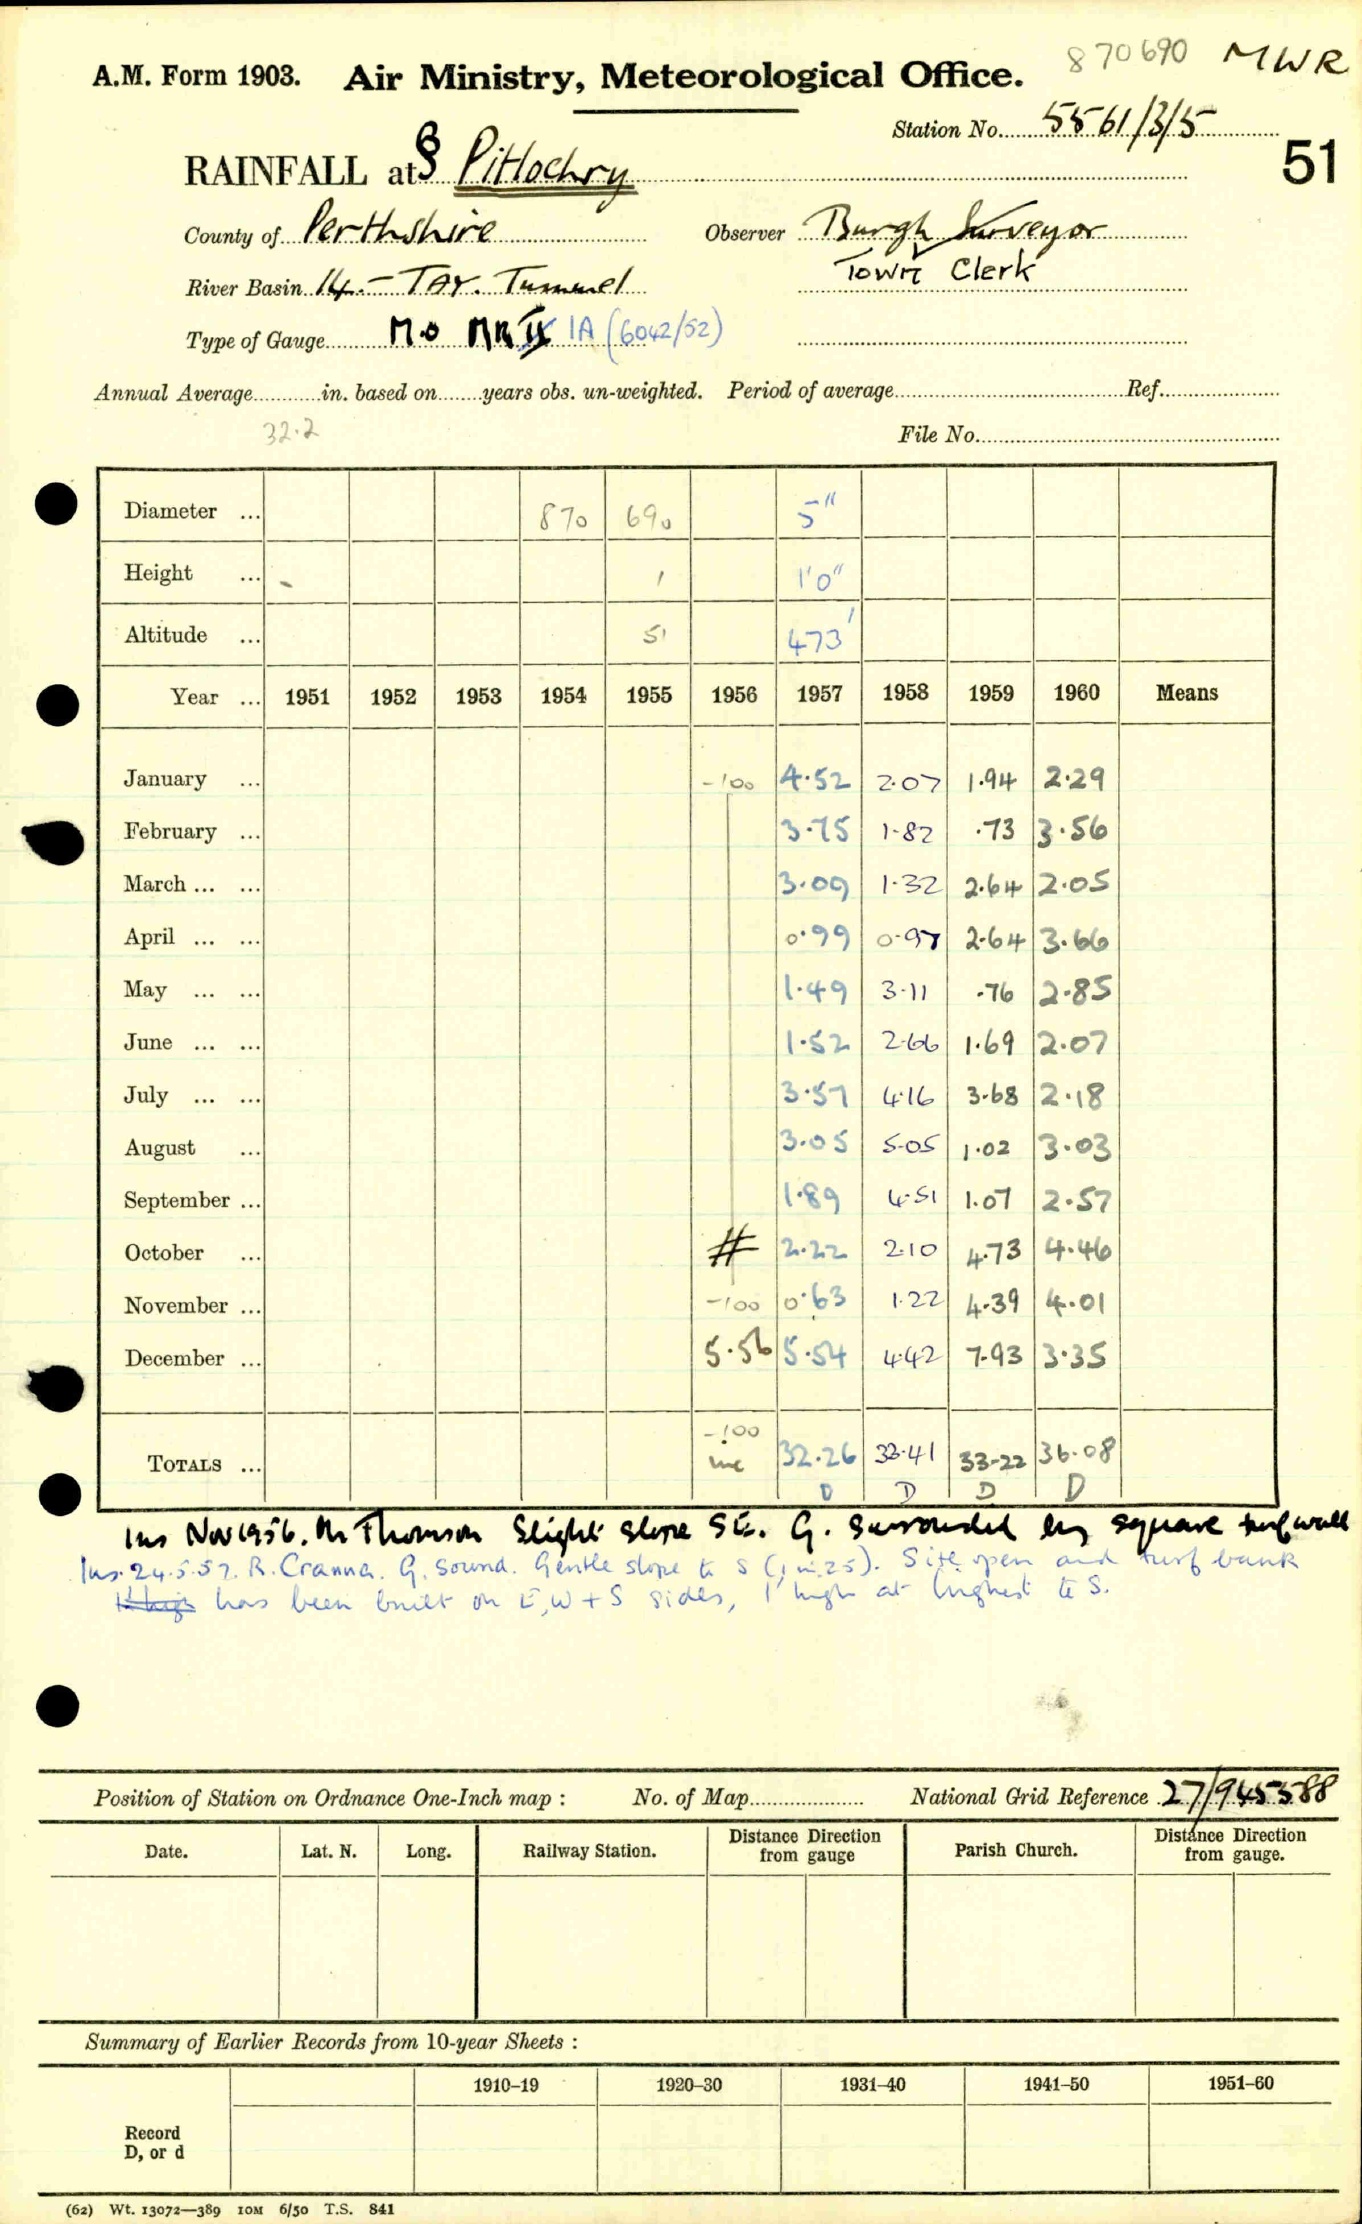 870690 MWR
A.M. Form 1903. Air Ministry, Meteorological Office.
Station No. 5561/3/5
51
RAINFALL at § Pitlochry
County of Perthshire Observer Burgh Surveyor
Town Clerk
River Basin 14.- TAY. Tummel
Type of Gauge M.O MK II IA (6042/52)
Annual Average in. based on years obs. un-weighted. Period of average Ref.
32.2
File No.
Diameter ... 870 690 5"
Height ... 1 1'0"
Altitude ... 51 473'
Year ... 1951 1952 1953 1954 1955 1956 1957 1958 1959 1960 Means
January ... -100 4.52 2.07 1.94 2.29
February ... 3.75 1.82 .73 3.56
March ... ... 3.09 1.32 2.64 2.05
April ... ... 0.99 0.97 2.64 3.66
May ... ... 1.49 3.11 .76 2.85
June ... ... 1.52 2.66 1.69 2.07
July ... ... 3.57 4.16 3.68 2.18
August ... 3.05 5.05 1.02 3.03
September ... 1.89 4.51 1.07 2.57
October ... # 2.22 2.10 4.73 4.46
November ... -100 0.63 1.22 4.39 4.01
December ... 5.56 5.54 4.42 7.93 3.35
-100
TOTALS ... inc 32.26 33.41 33.22 36.08
D D D D
Ins Nov 1956. Mr Thomson Slight slope SE. G. surrounded by square turf wall
Ins. 24.5.57. R. Cranna. G. sound. Gentle slope to S (1 in 25). Site open and turf bank
1' high has been built on E, W + S sides, 1' high at highest to S.
Position of Station on Ordnance One-Inch map : No. of Map National Grid Reference 27/945588
Date. Lat. N. Long. Railway Station. Distance from gauge Direction Parish Church. Distance from gauge. Direction
Summary of Earlier Records from 10-year Sheets :
1910-19 1920-30 1931-40 1941-50 1951-60
Record
D, or d
(62) Wt. 13072—389 10M 6/50 T.S. 841